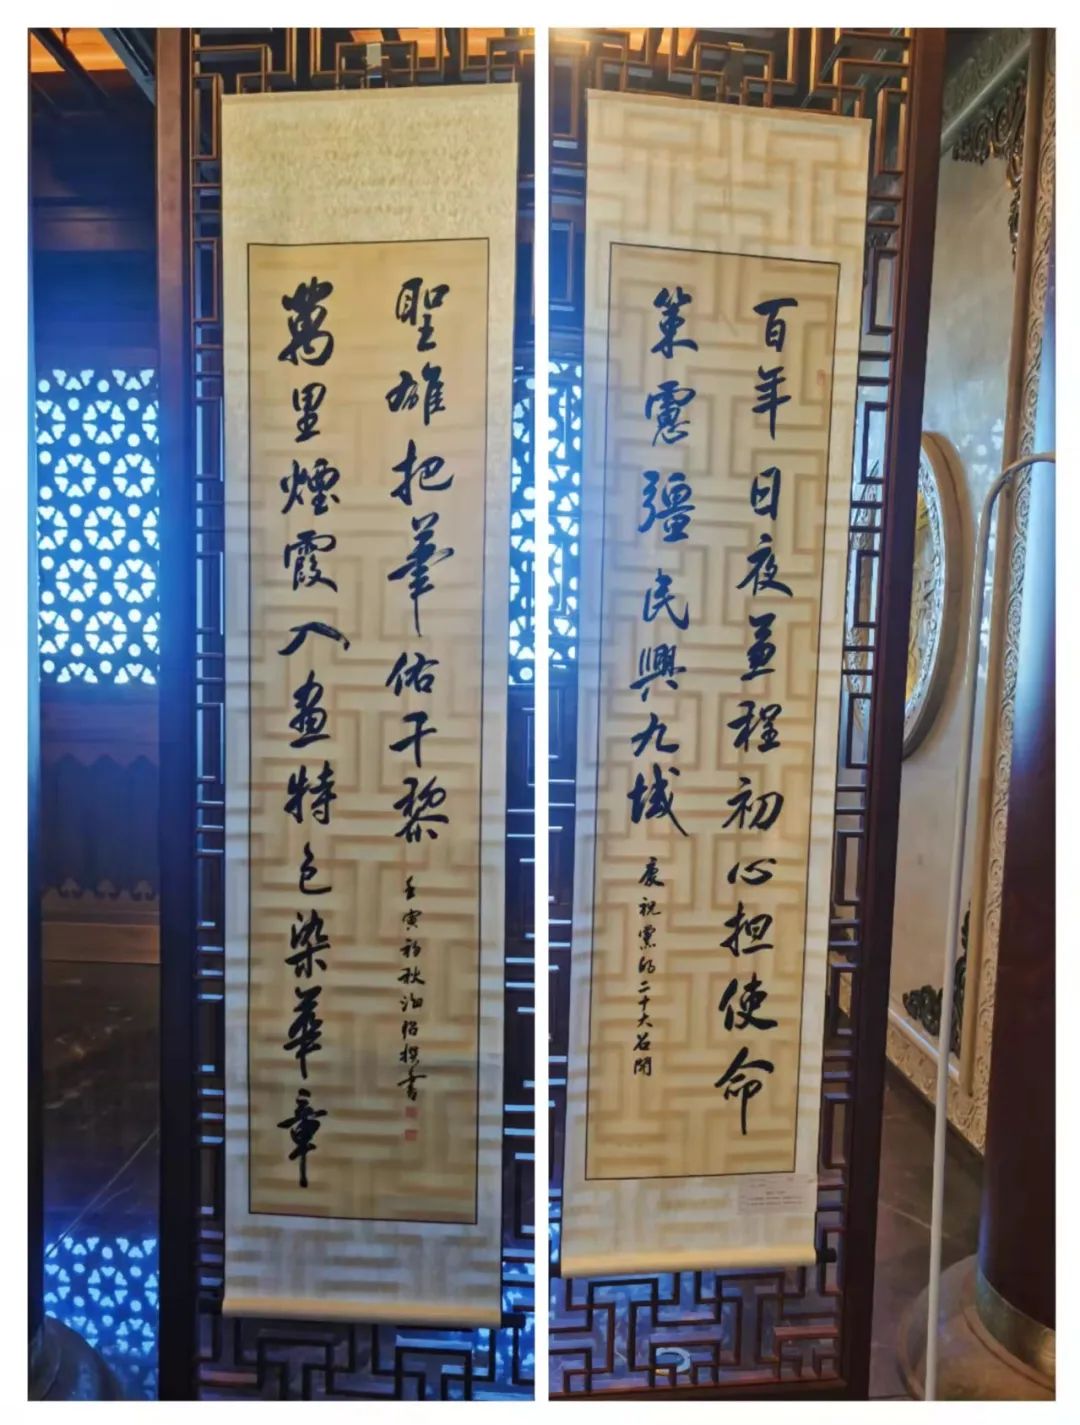 百年日夜兼程初心担使命
策慮彊民興九域
慶祝黨的二十大召開
萬里煙霞入畫特色染華章
聖雄把筆佑千黎
壬寅初秋撰書